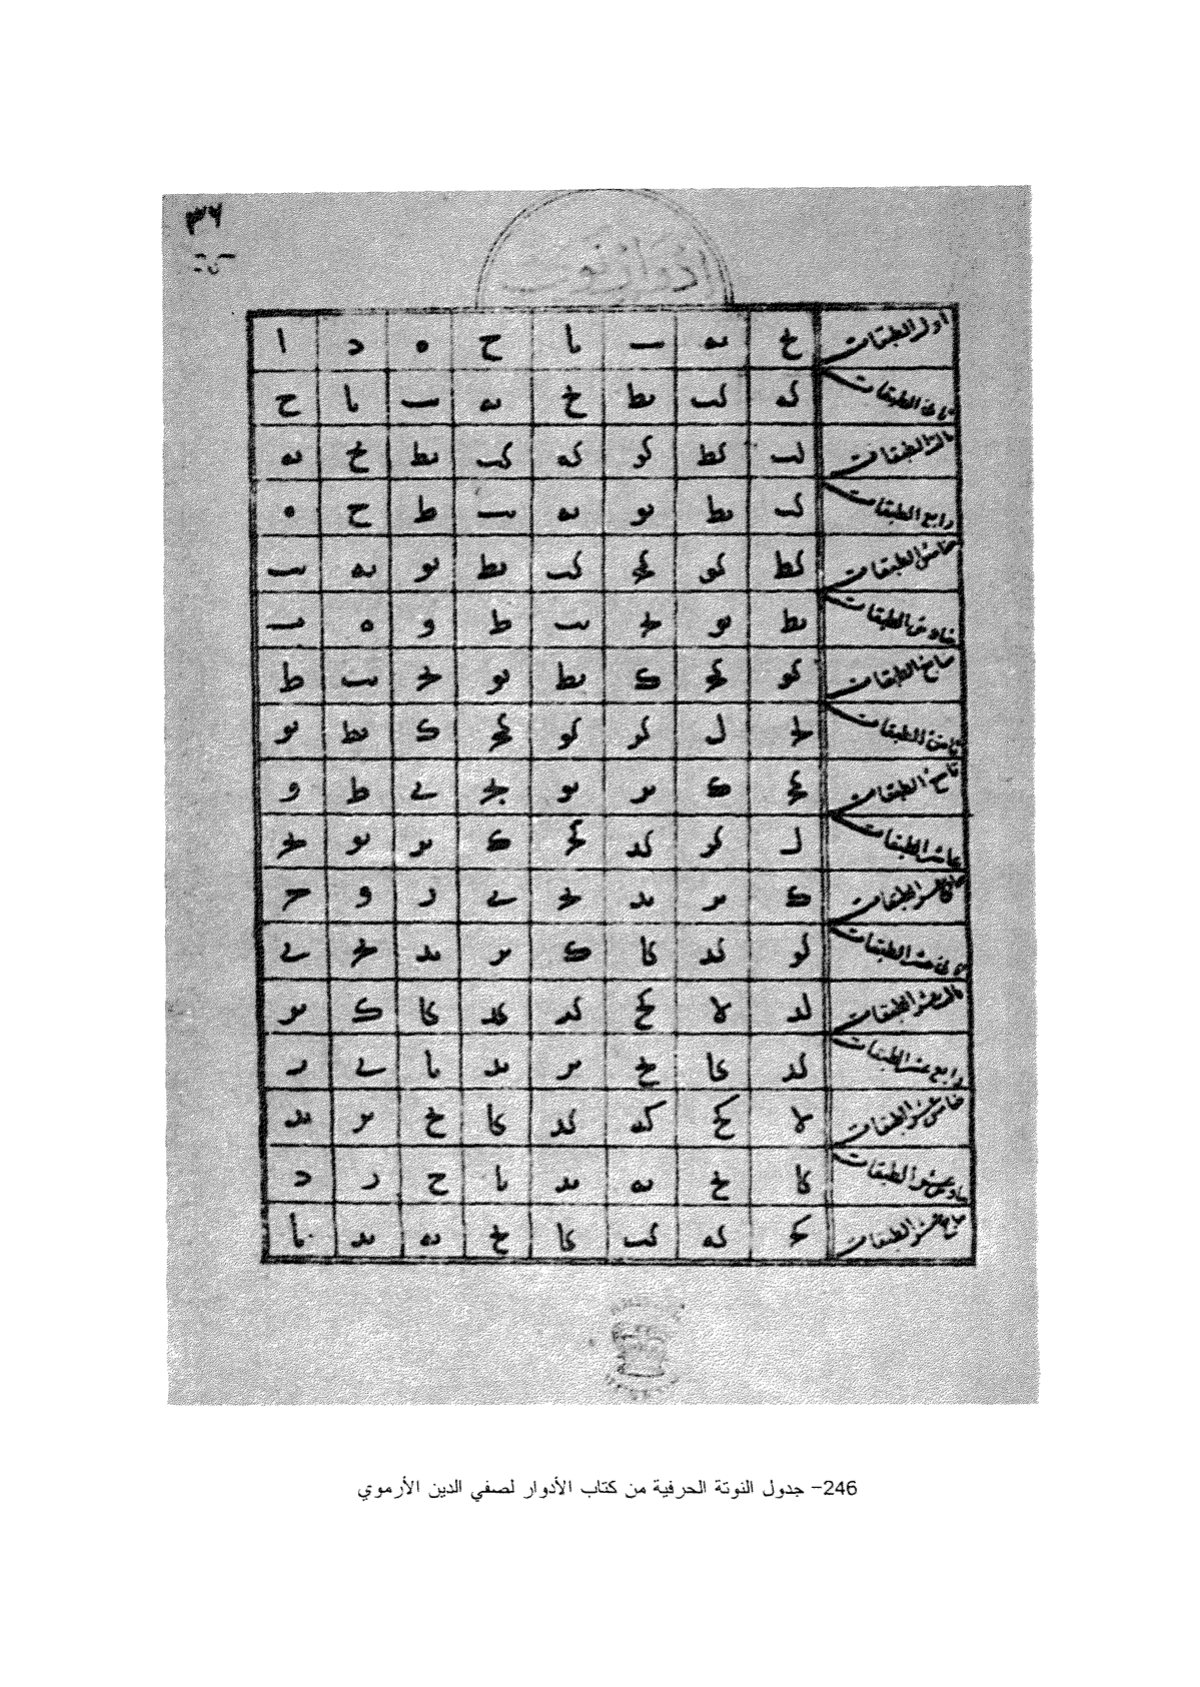 ٣٦
ادوار نوى
اول الطبقات يح يه يب يا ح ه د ا
ثانى الطبقات كه كب يط يح يه يب يا ح
ثالث الطبقات لب كط كو كه كب يط يح يه
رابع الطبقات كب يط يو يه يب ط ح ه
خامس الطبقات كط كو كج كب يط يو يه يب
سادس الطبقات يط يو يج يب ط و ه ب
سابع الطبقات كو كج ك يط يو يج يب ط
ثامن الطبقات لج ل كز كو كج ك يط يو
تاسع الطبقات كج ك يز يو يج ي ط و
عاشر الطبقات ل كز كد كج ك يز يو يج
حادى عشر الطبقات ك يز يد يج ي ز و ج
ثانى عشر الطبقات كز كد كا ك يز يد يج ي
ثالث عشر الطبقات لد لا كح كز كد كا ك يز
رابع عشر الطبقات كد كا يح يز يد يا ي ز
خامس عشر الطبقات لا كح كه كد كا يح يز يد
سادس عشر الطبقات كا يح يه يد يا ح ز د
سابع عشر الطبقات كح كه كب كا يح يه يد يا
246- جدول النوتة الحرفية من كتاب الأدوار لصفي الدين الأرموي